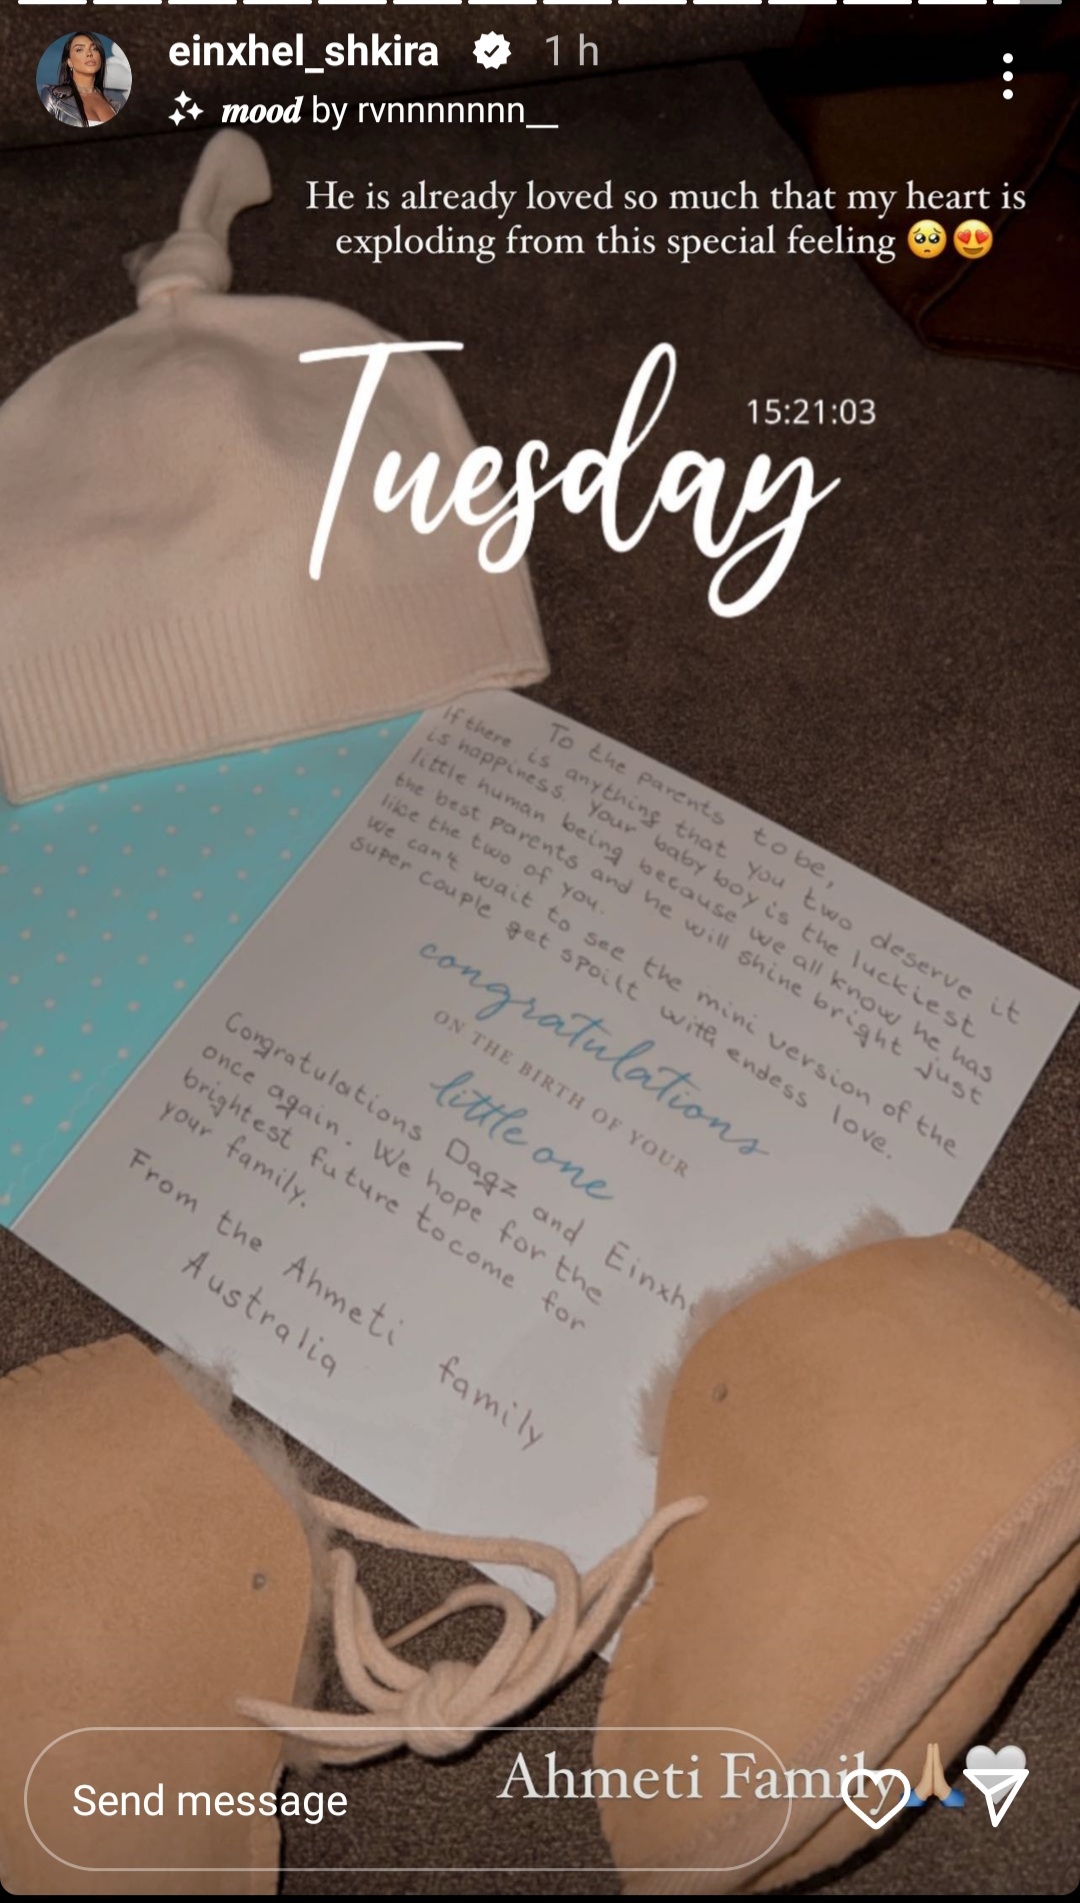 einxhel_shkira 1 h
mood by rvnnnnnnn__
He is already loved so much that my heart is
exploding from this special feeling 🥺😍
15:21:03
Tuesday
To the parents to be,
If there is anything that you two deserve it
is happiness. Your baby boy is the luckiest
little human being because we all know he has
the best parents and he will shine bright just
like the two of you.
We can't wait to see the mini version of the
super couple get spoilt with endess love.
congratulations
ON THE BIRTH OF YOUR
little one
Congratulations Dagz and Einxhe
once again. We hope for the
brightest future tocome for
your family.
From the Ahmeti family
Australia
Ahmeti Family🙏🏼🤍
Send message